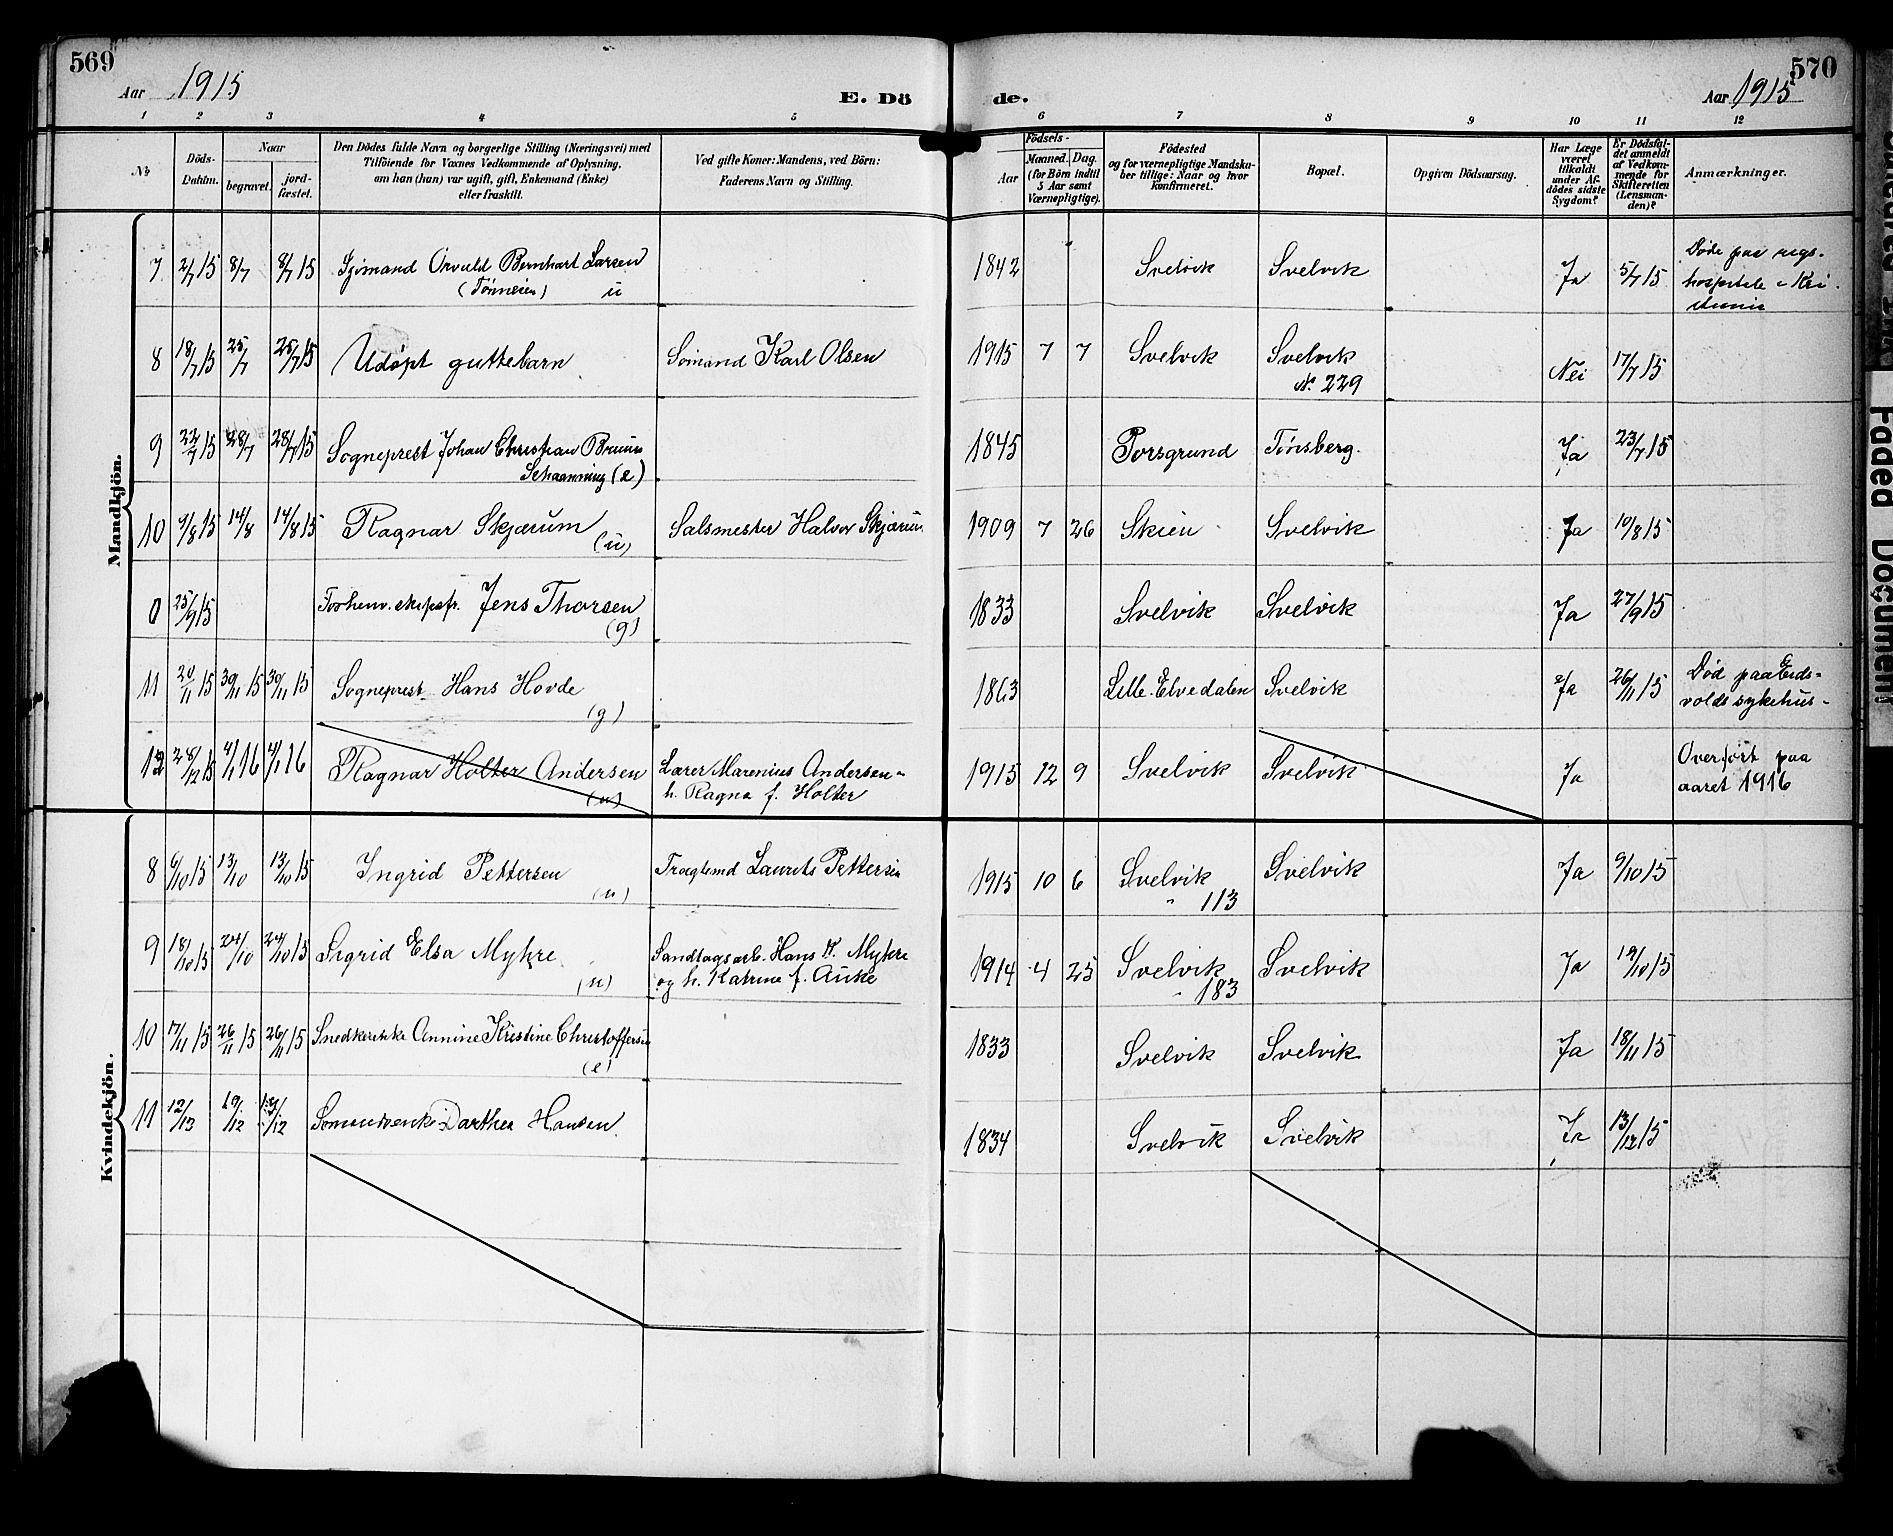 569
Aar 1915
E. Dö
de.
Aar 1915
570
1 2 3 4 5 6 7 8 9 10 11 12
No.
Döds-Datum.
Naar
begravet.
jord-fæstet.
Den Dödes fulde Navn og borgerlige Stilling (Næringsvei) med
Tilföiende for Voxnes Vedkommende af Oplysning,
om han (hun) var ugift, gift, Enkemand (Enke)
eller fraskilt.
Ved gifte Koner: Mandens, ved Börn:
Faderens Navn og Stilling.
Födsels-
Aar
Maaned. Dag.
(for Börn indtil
5 Aar samt
Værnepligtige).
Födested
og for værnepligtige Mandska-
ber tillige: Naar og hvor
konfirmeret.
Bopæl.
Opgiven Dödsaarsag.
Har Læge
været
tilkaldt
under Af-
dödes sidste
Sygdom?
Er Dödsfal-
det anmeldt
af Vedkom-
mende for
Skifteretten
(Lensman-
den)?
Anmærkninger.
Mandkjön.
7 2/7 15 8/7 8/7 15 Sjömand Orvald Bernhart Larsen 1842 Svelvik Svelvik Ja 5/7 15 Döde paa rigs-
(Tönneien) u hospitale i Kri
stiania
8 18/7 15 25/7 25/7 15 Udöpt guttebarn Sömand Karl Olsen 1915 7 7 Svelvik Svelvik Nei 17/7 15
No. 229
9 22/7 15 28/7 28/7 15 Sogneprest Johan Christian Bruun 1845 Porsgrund Tönsberg. Ja 23/7 15
Schaanning (e)
10 9/8 15 14/8 14/8 15 Ragnar Skjærum Salsmester Halvor Skjærum 1909 7 26 Skien Svelvik Ja 10/8 15
(u)
0 25/9 15 Forhenv. skipsf. Jens Thorsen 1833 Svelvik Svelvik Ja 27/9 15
(g)
11 20/11 15 30/11 15 30/11 15 Sogneprest Hans Hovde 1863 Lille-Elvedalen Svelvik Ja 26/11 15 Död paa Eids-
(g) volds sykehus-
12 28/12 15 4/1 16 4/1 16 Ragnar Holter Andersen Lærer Marenius Andersen- 1915 12 9 Svelvik Svelvik Ja Overfört paa
(u) h. Ragna f. Holter aaret 1916
Kvindekjön.
8 6/10 15 13/10 13/10 15 Ingrid Pettersen Laurits Pettersen 1915 10 6 Svelvik Svelvik Ja 9/10 15
(u) " 113
9 18/10 15 24/10 24/10 15 Sigrid Elsa Myhre Sandtagsarb. Hans K. Myhre 1914 4 25 Svelvik Svelvik Ja 19/10 15
(u) og h. Katrine f. Auke " 183
10 17/11 15 26/11 15 26/11 15 Snedkerenke Annine Kristine Christoffersen 1833 Svelvik Svelvik Ja 18/11 15
(e)
11 12/13 19/12 19/12 Sömandsenke Darthea Hansen 1834 Svelvik Svelvik Ja 13/12 15
Faded Document